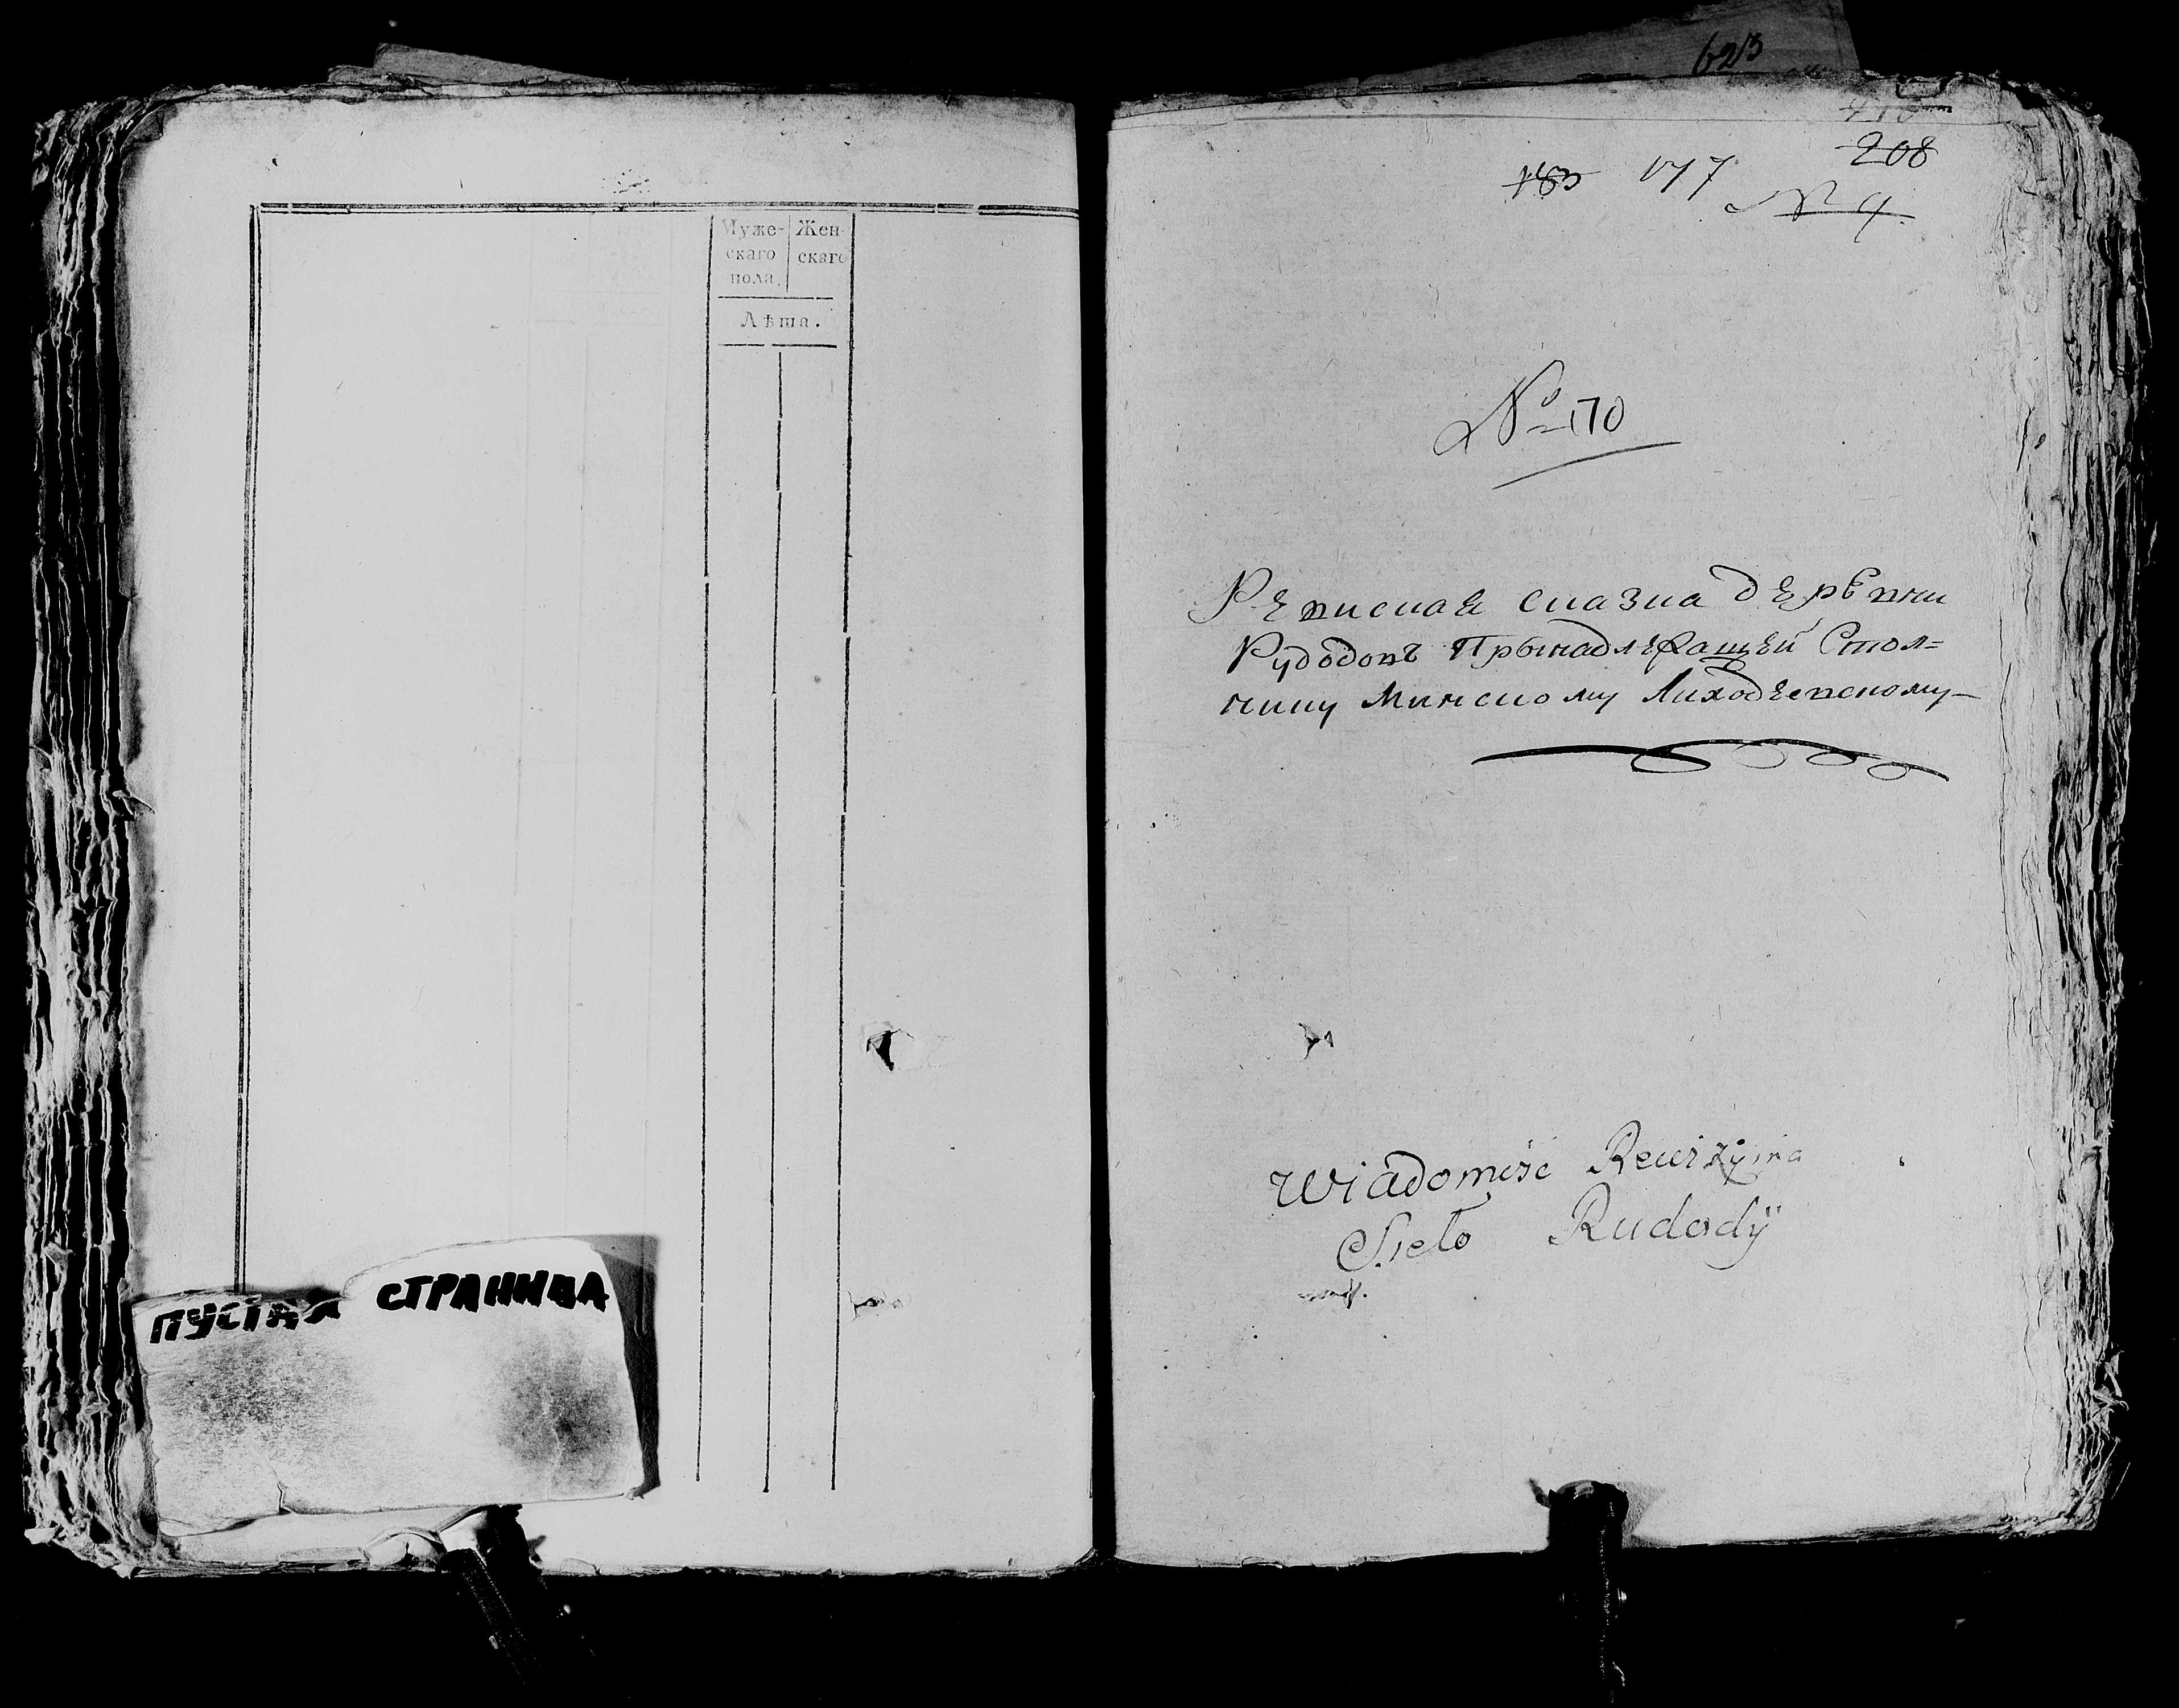 Муже-
скаго
пола.
Жен-
скаго
Лѣта.
ПУСТАЯ СТРАНИЦА
623
208
183 177
№ 4.
№ 170
Рѣвиская сказка дѣрѣвни
Рудодовъ Прынадлѣжащѣй Стол-
нику Минскому Лиходѣевскому
Wiadomość Rewizyina
Sieło Rudody